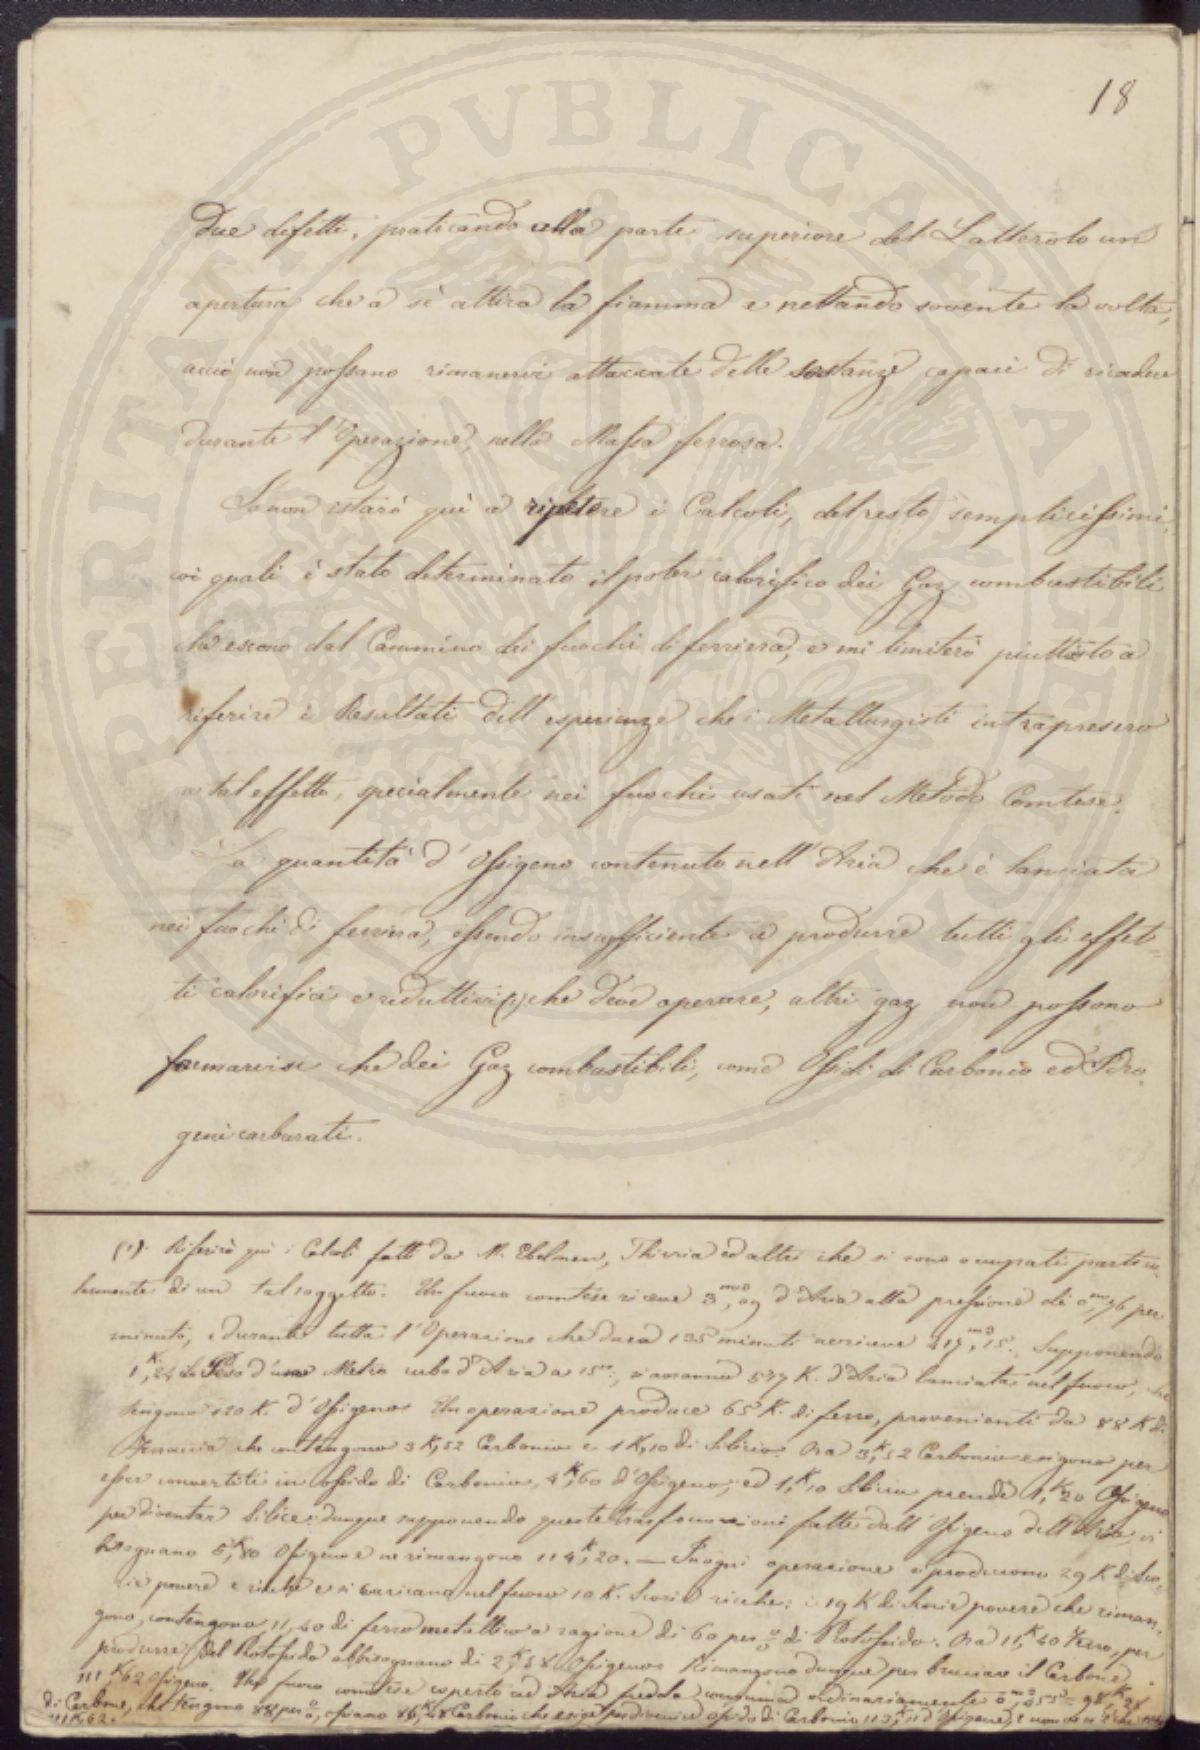 18
Due difetti, praticando alla parte superiore del Latterolo un
apertura che a sè attira la fiamma e nettando sovente la volta,
acciò non possano rimanervi attaccate delle sostanze capaci di ricadere
durante l'Operazione, nella Massa ferrosa.
Io non istarò quì a ripetere i Calcoli, del resto semplicissimi,
coi quali è stato determinato il poter calorifico dei Gaz combustibili
che escono dal Cammino dei fuochi di ferriera, e mi limiterò piuttosto a
riferire i Resultati dell'esperienze che i Metallurgisti intrapresero
a tal effetto, specialmente nei fuochi usati nel Metodo Comtese.
La quantità d'Ossigeno contenuto nell'Aria che è lanciata
nei fuochi di ferriera, essendo insufficiente a produrre tutti gli effet-
ti calorifici e reduttivi (1) che deve operare, altri gaz non possono
formarvisi che dei Gaz combustibili, come Ossidi di Carbonio ed Idro-
geni carburati.
(1). Riferirò quì i Calcoli fatti da M. Ebelmen, Thirria ed altri che si sono occupati partico-
larmente di un tal soggetto. Un fuoco comtese riceve 3,09 d'Aria alla pressione di 0,76 per
minuto, e durante tutta l'Operazione che dura 135 minuti ne riceve 417,15. Supponendo
1K,29 il Peso d'uno Metro cubo d'Aria a 15°, si avranno 5 K. d'Aria lanciata nel fuoco, che
tengono 120 K. d'Ossigeno. Un operazione produce 65 K. di ferro, provenienti da 88 K di
che contengono 3K,52 Carbonio e 1K,10 di Silicio. Ora 3K,52 Carbonio esigono per
esser convertiti in ossido di Carbonio, 4K,60 d'Ossigeno; ed 1K,10 Silicio prende 1K,20 Ossigeno
per diventar Silice: dunque supponendo queste trasformazioni fatte dall'Ossigeno dell'Aria, vi
bisognano 5K,80 Ossigeno e ne rimangono 114K,20. — In ogni operazione si producono 29 K di Sco-
rie povere e ricche e si caricano nel fuoco 10 K. Scorie ricche: i 19 K di Scorie povere che riman-
gono, contengono 11,40 di ferro metallico a ragione di 60 per % di Protossido. Ora 11K,40 Ferro, per
produrre del Protossido abbisognano di 2K,58 Ossigeno. Rimangono dunque per bruciare il Carbone
111K62 Ossigeno. Un fuoco comtese esperto ad Aria fredda consuma ordinariamente = 98K,28
di Carbone, che tengono 88 per %, ossiano 86K,48 Carbonio che esige per divenire ossido di Carbonio 113K,11 d'Ossigeno, e non
111K62.